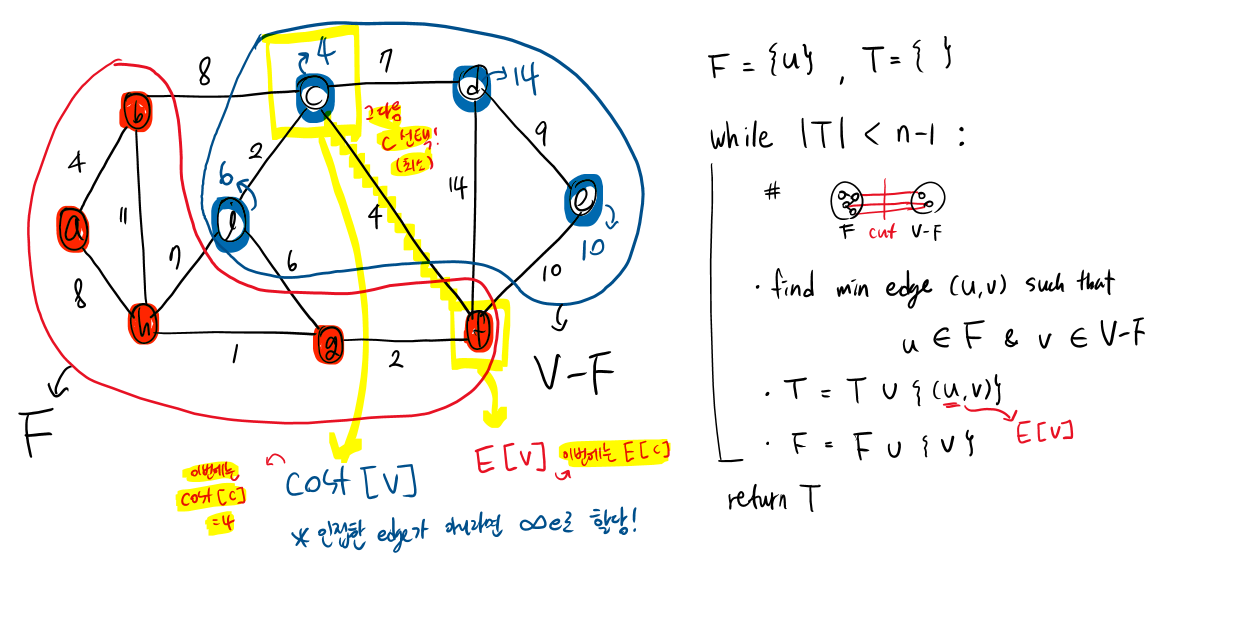 8
4
7
b
c
d
14
그다음
C 선택!
(최소)
4
2
9
11
6
14
4
a
i
e
10
8
7
6
10
h
1
g
2
f
F
V-F
이번에는
cost[c]
=4
cost[v]
E[v] 이번에는 E[c]
* 인접한 edge가 아니라면 ∞로 할당!
F = {u} , T = { }
while |T| < n-1 :
#
F cut V-F
· find min edge (u,v) such that
u ∈ F & v ∈ V-F
· T = T ∪ {(u,v)}
E[v]
· F = F ∪ {v}
return T